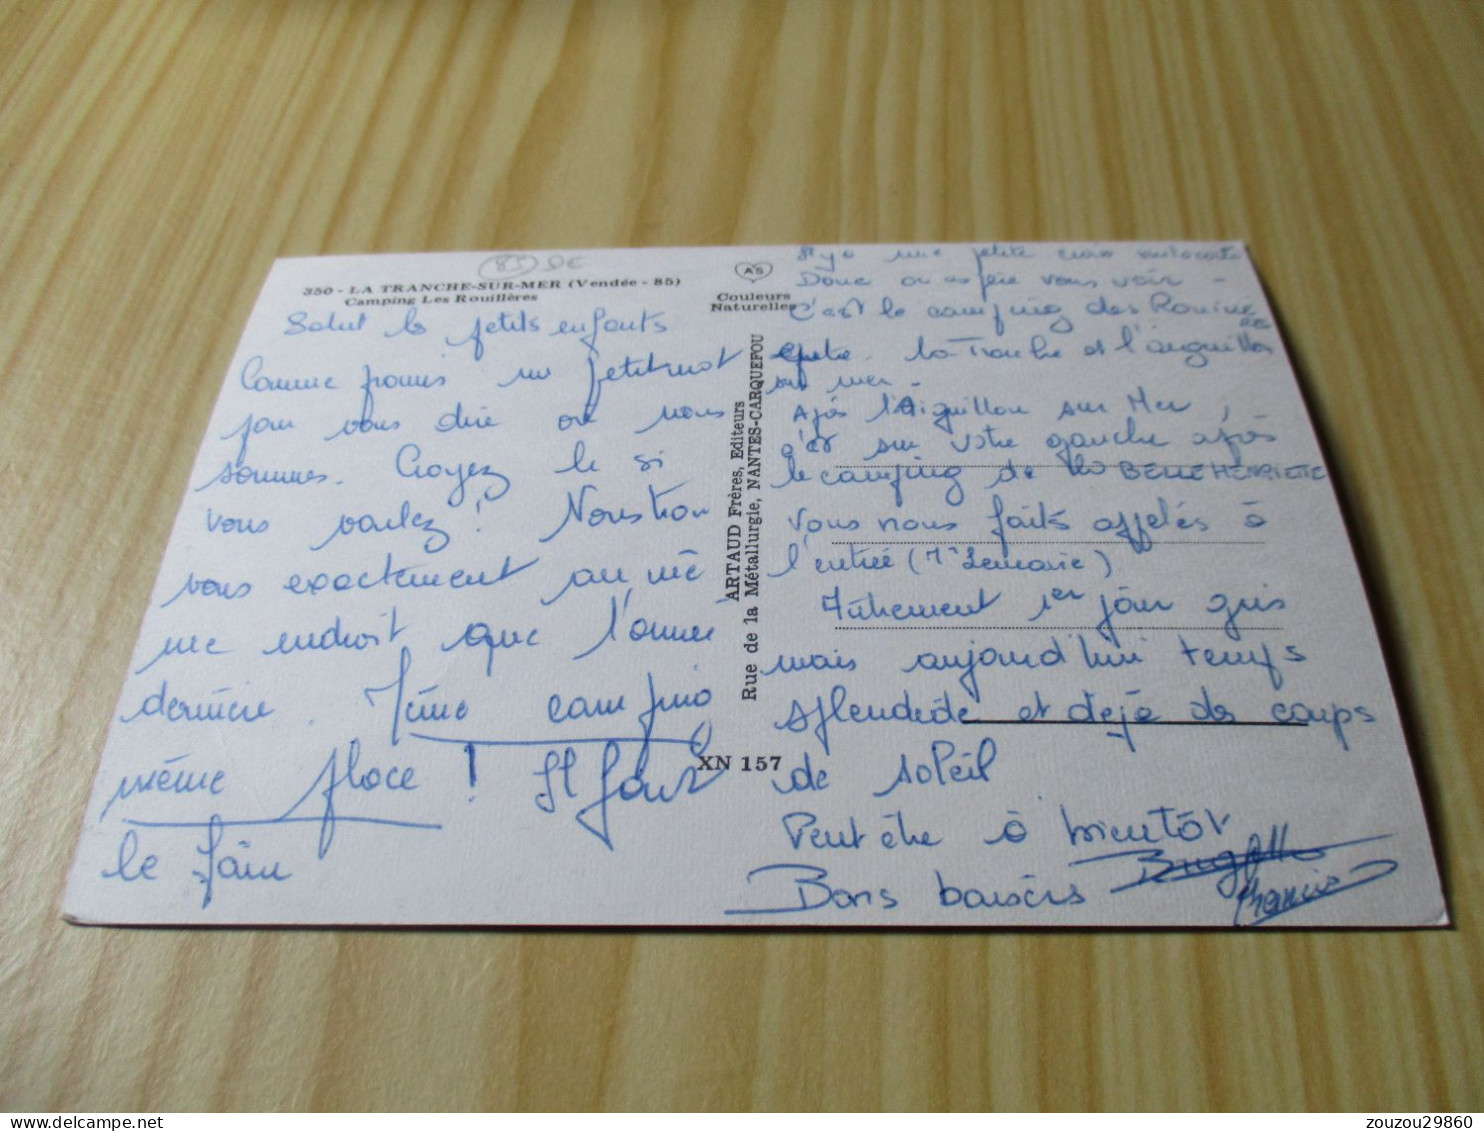 (85) DE
350 - LA TRANCHE-SUR-MER (Vendée - 85)
Camping Les Rouillères
Salut les petits enfants
Comme promis un petit mot
pour vous dire où nous
sommes. Croyez le si
vous voulez! Nous trou
vons exactement au mê
me endroit que l'année
dernière. Même camping
même place! Il faut
le faire
AS
Couleurs
Naturelles
ARTAUD Frères, Editeurs
Rue de la Métallurgie, NANTES-CARQUEFOU
XN 157
Il y a une petite
Donc on espère vous voir -
C'est le camping des
entre la Tranche et l'aiguillon
sur mer -
Après l'Aiguillon sur Mer,
c'est sur votre gauche après
le camping de la BELLE HENRIETTE
Vous nous faits appelés à
l'entrée (
Autrement 1er jour gris
mais aujourd'hui temps
splendide et déjà des coups
de soleil
Peut être à bientôt
Bons baisers
Francis
zouzou29860